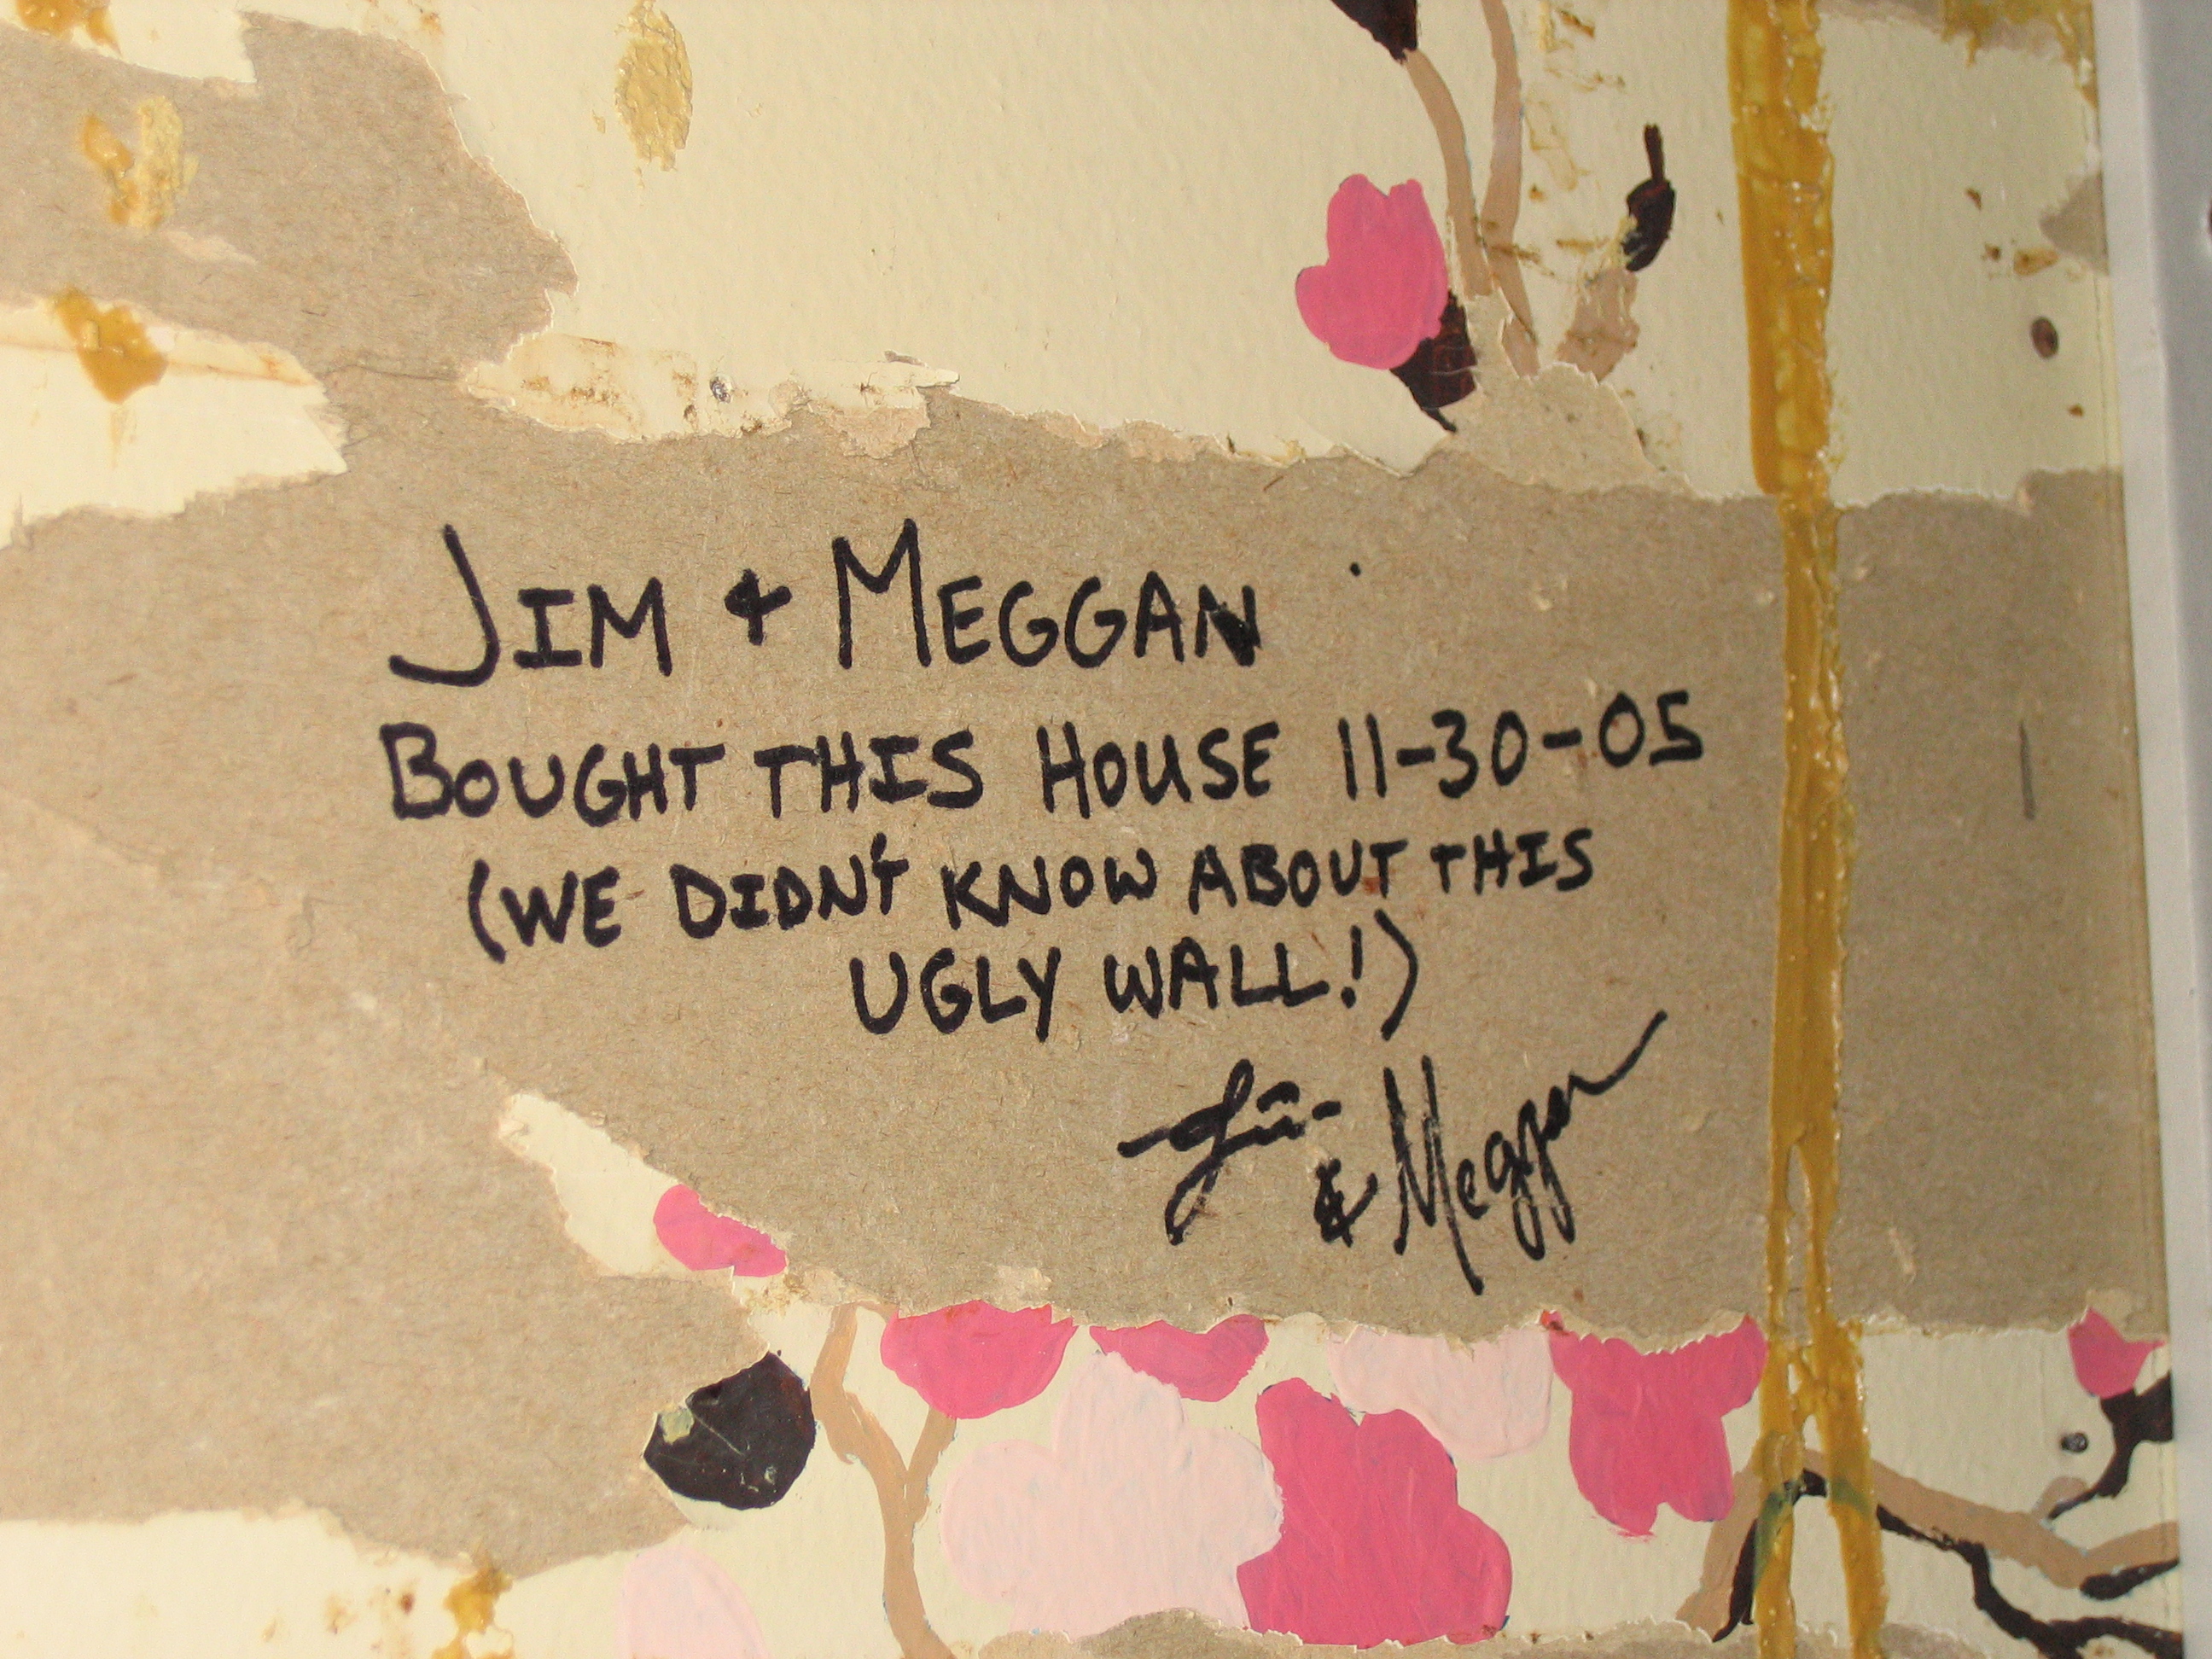 JIM & MEGGAN
BOUGHT THIS HOUSE 11-30-05
(WE DIDN'T KNOW ABOUT THIS
UGLY WALL!)
Jim
& Meggan